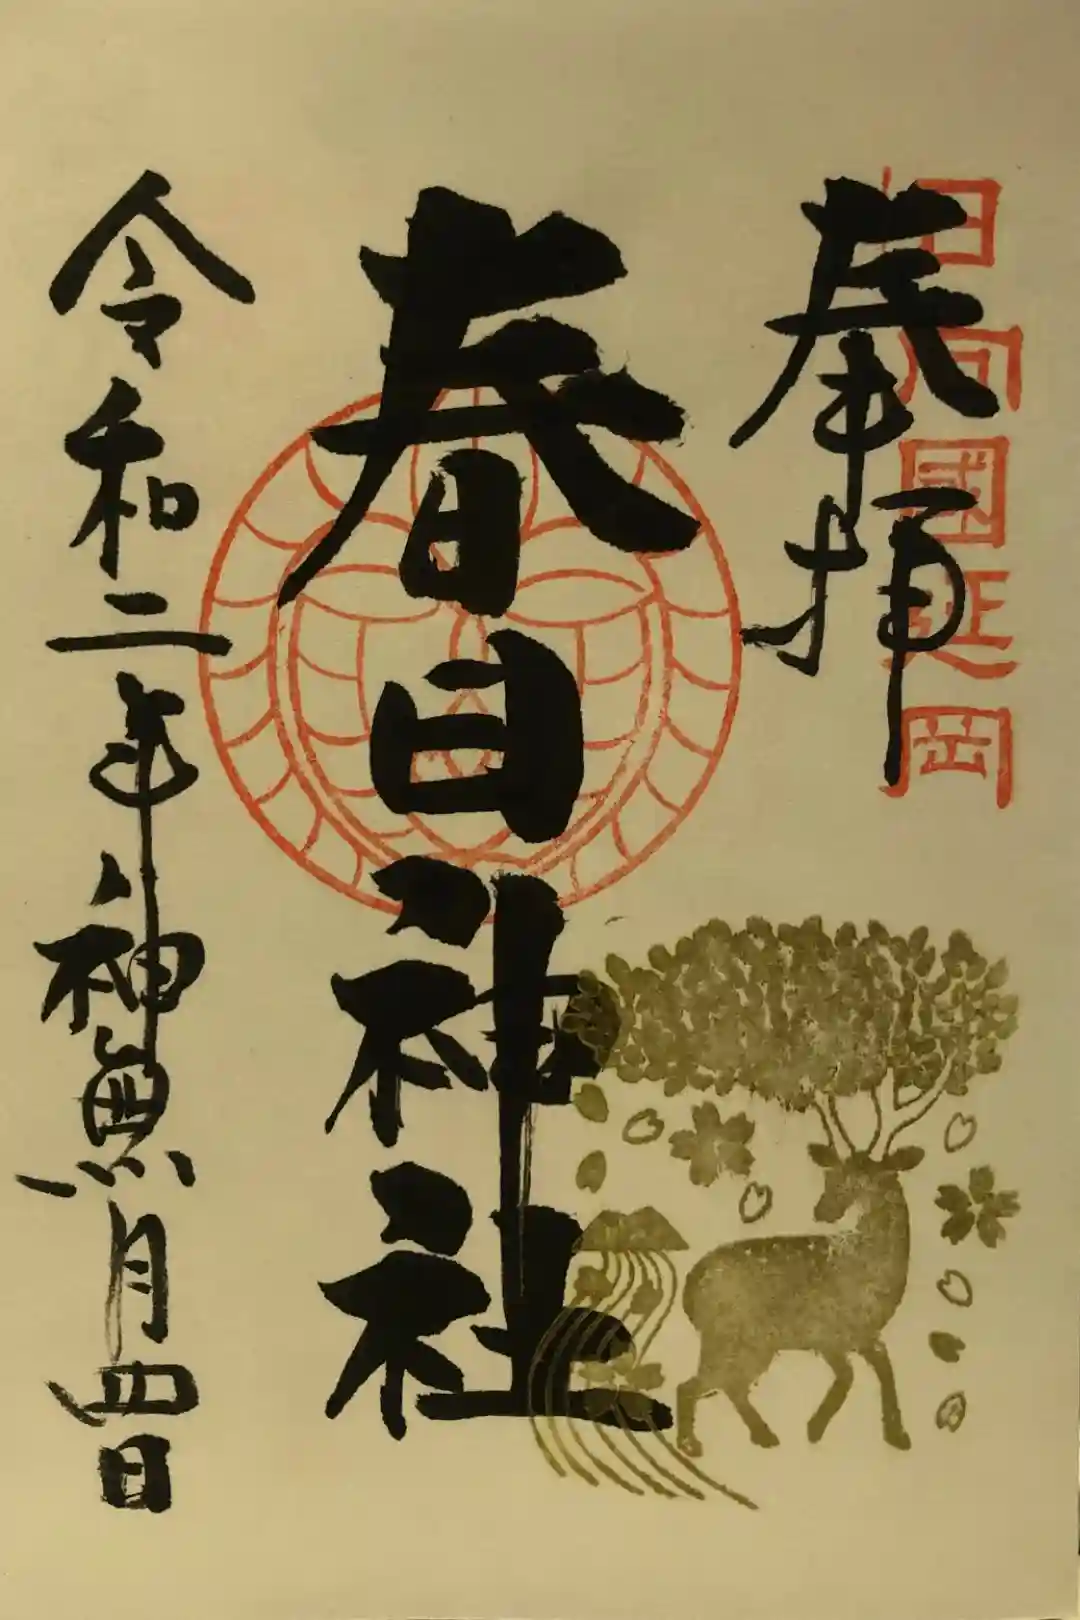 奉拝
日向國延岡
春日神社
令和二年神無月四日